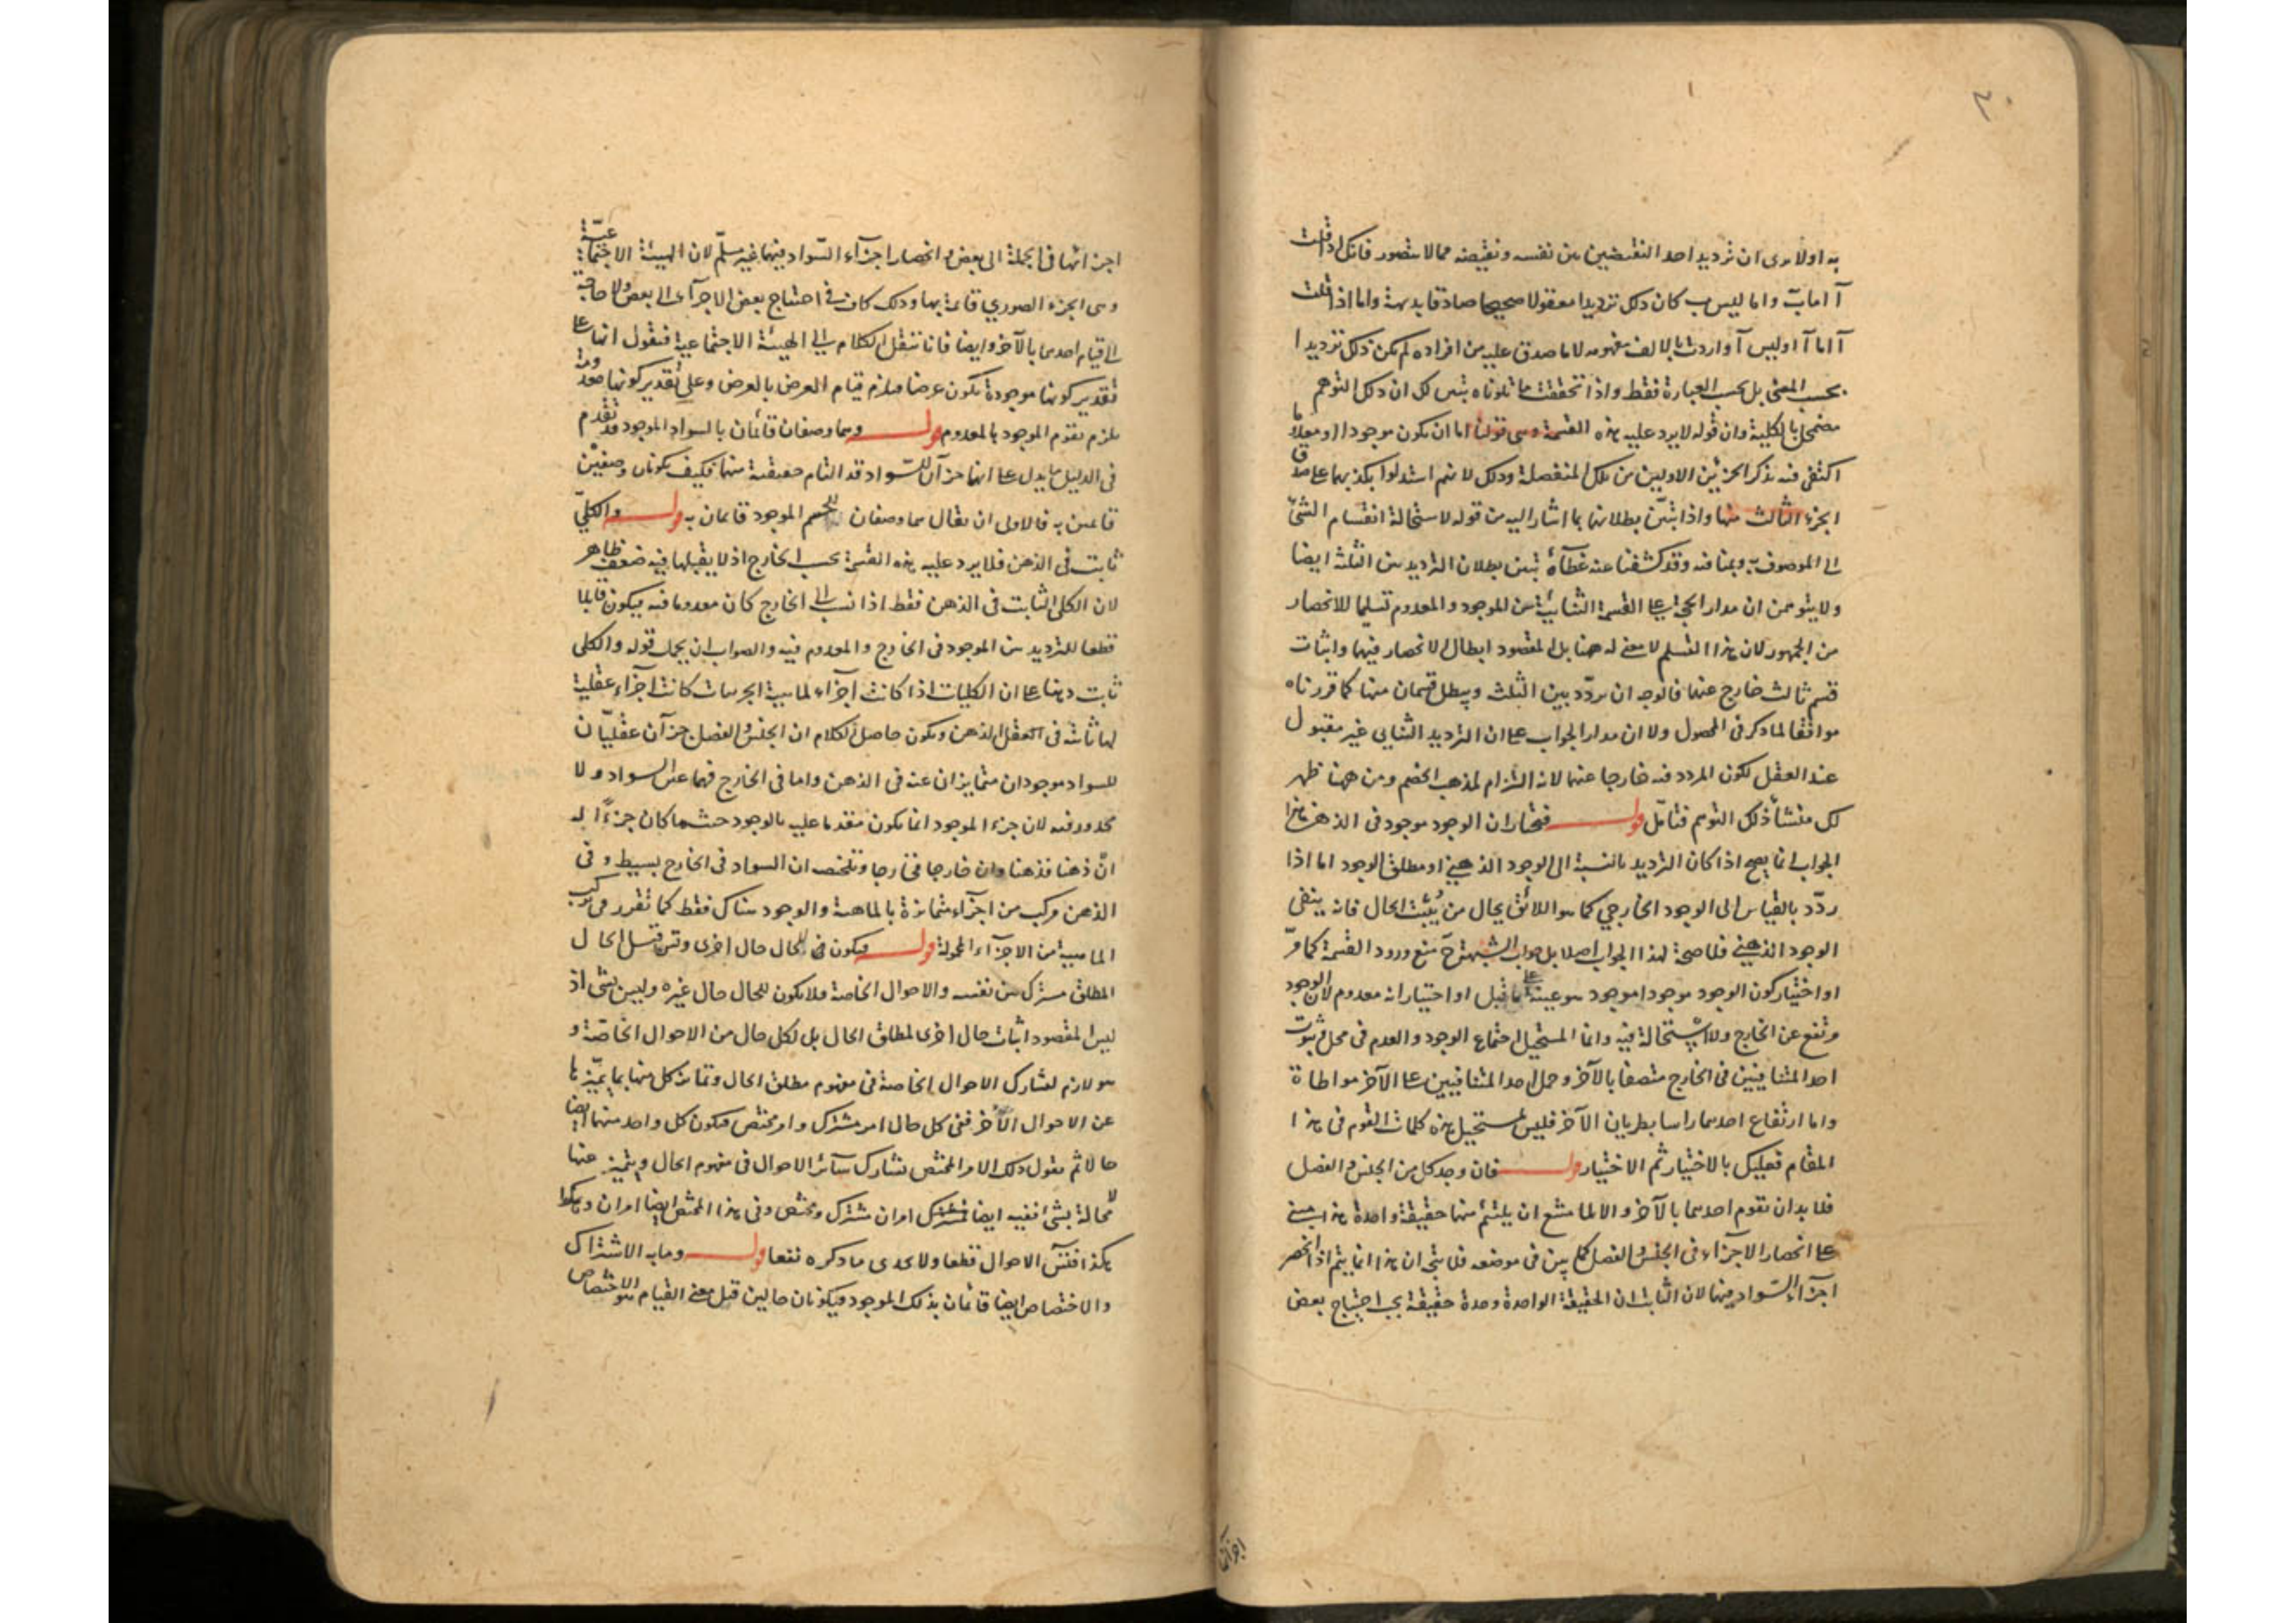 ٢٠
به اولا يرى ان ترديد احد النقيضين بين نفسه ونقيضه مما لا يتصور فانك اذا قلت
آ اما ب واما ليس ب كان ذلك ترديدا معقولا صحيحا صادقا بديهة واما اذا قلت
آ اما آ او ليس آ واردت بالالف مفهومه لا ما صدق عليه من افراده لم يكن ذلك ترديدا
بحسب المعنى بل بحسب العبارة فقط واذا تحققت ما تلوناه تبين لك ان ذلك التوهم
مضمحل بالكلية وان قوله لا يرد عليه هذه القسمة وهى قولنا اما ان يكون موجودا او معدوما
اكتفى فيه بذكر الجزئين الاولين من تلك المنفصلة وذلك لانهم استدلوا بكذبهما على صدق
الجزء الثالث منها واذا تبيّن بطلانها بما اشار اليه من قوله لاستحالة انقسام الشئ
الى الموصوف به وبمنافيه وقد كشفنا عنه غطآءه تبين بطلان الترديد بين الثلثة ايضا
ولا يتوهمن ان مدار الحجة على القسمة الثنائية بين الموجود والمعدوم تسليما للانحصار
من الجمهور لان هذا التسليم لا معنى له ههنا بل المقصود ابطال الانحصار فيهما واثبات
قسم ثالث خارج عنهما فالوجه ان يردّد بين الثلث ويبطل قسمان منها كما قررناه
موافقا لما ذكر فى المحصول ولا ان مدار الجواب على ان الترديد الثنائى غير مقبول
عند العقل لكون المردد فيه خارجا عنهما لانه التزام لمذهب الخصم ومن ههنا ظهر
لك منشأ ذلك التوهم فتأمّل قولـــه فنختار ان الوجود موجود فى الذهن هذا
الجواب انما يصح اذا كان الترديد بالنسبة الى الوجود الذهنى او مطلق الوجود اما اذا
ردّد بالقياس الى الوجود الخارجي كما هو اللائق بحال من يُثبت الحال فانه ينفى
الوجود الذهنى فلا صحة لهذا الجواب اصلا بل جواب الشبهة ح منع ورود القسمة كما مرّ
او اختيار كون الوجود موجودا موجود هو عينه على ما قيل او اختيار انه معدوم لان الوجود
مرتفع عن الخارج ولا استحالة فيه وانما المستحيل اجتماع الوجود والعدم فى محل وثبوت
احد المتنافيين فى الخارج متصفا بالآخر وحمل احد المتنافيين على الآخر مواطاة
واما ارتفاع احدهما راسا بطريان الآخر فليس بمستحيل هذه كلمات القوم فى هذا
المقام فعليك بالاختبار ثم الاختيار قولـــه فان وجد كل من الجنس والفصل
فلا بد ان تقوم احدهما بالآخر والا لما متنع ان يلتئم منهما حقيقة واحدة هذا مبنى
على انحصار الاجزاء فى الجنس والفصل كما بين فى موضعه فلا يتجه ان هذا انما يتم اذا انحصر
اجزآء السّواد فيهما لان الثابت ان الحقيقة الواحدة وحدة حقيقية يجب احتياج بعض
اجزائها
اجزائها فى الجملة الى بعض وانحصار اجزآء السّواد فيهما غير مسلّم لان الهيئة الاجتماعيّة
وهى الجزء الصورى قائمة بها وذلك كاف فى احتياج بعض الاجزآء الى بعض ولا حاجة
الى قيام احدهما بالآخر وايضا فانا ننقل الكلام الى الهيئة الاجتماعية فنقول انها على
تقدير كونها موجودة يكون عرضا فيلزم قيام العرض بالعرض وعلى تقدير كونها معدومة
يلزم تقوم الموجود بالمعدوم قولـــه وهما وصفان قائمان بالسواد الموجود قد تقدم
فى الدليل ما يدل على انهما جزآن للسّواد قد التام حقيقته منهما فكيف يكونان وصفيْن
قائمين به فالاولى ان يقال هما وصفان للجسم الموجود قائمان به قولـــه والكلّي
ثابت فى الذهن فلا يرد عليه هذه القسمة بحسب الخارج اذ لا يقبلها فيه ضعف ظاهر
لان الكلى الثابت فى الذهن فقط اذا نسب الى الخارج كان معدوما فيه فيكون قابلا
قطعا للترديد بين الموجود فى الخارج والمعدوم فيه والصواب ان يحمل قوله والكلى
ثابت ذهنا على ان الكليات اذا كانت اجزآء لماهية الجزئيات كانت اجزاء عقلية
لها ثابتة فى العقل الذهن ويكون حاصل الكلام ان الجنس والفصل جزآن عقليّان
للسواد موجودان متمايزان عنه فى الذهن واما فى الخارج فهما عين السواد ولا
محذور فيه لان جزء الموجود انما يكون متقدما عليه بالوجود حيثما كان جزءًا له
انّ ذهنا فذهنا وان خارجا فخارجا وتلخيصه ان السواد فى الخارج بسيط وفى
الذهن مركب من اجزآء متمايزة بالماهية والوجود هناك فقط كما تقرر فى تركيب
الماهية من الاجزآء المحمولة قولـــه فيكون للحال حال اخرى وتس قيل الحال
المطلق مشترك بين نفسه والاحوال الخاصة فلا يكون للحال حال غيره وليس بشئ اذ
ليس المقصود اثبات حال اخرى لمطلق الحال بل لكل حال من الاحوال الخاصّة و
هو لازم لتشارك الاحوال الخاصة فى مفهوم مطلق الحال وتمايز كل منها بما يميّزها
عن الاحوال الأخر ففى كل حال امر مشترك وامر مختص فيكون كل واحد منهما ايضا
حالا ثم نقول ذلك الامر المختص تشارك سآئر الاحوال فى مفهوم الحال ويتميز عنها
لا محالة بشئ ففيه ايضا امران مشترك ومختص وفى هذا المختص ايضا امران وهكذا
هكذا فتتس الاحوال قطعا ولا يجدى ما ذكره نفعا قولـــه وما به الاشتراك
والاختصاص ايضا قائمان بذلك الموجود فيكونان حالين قيل معنى القيام هو الاختصاص